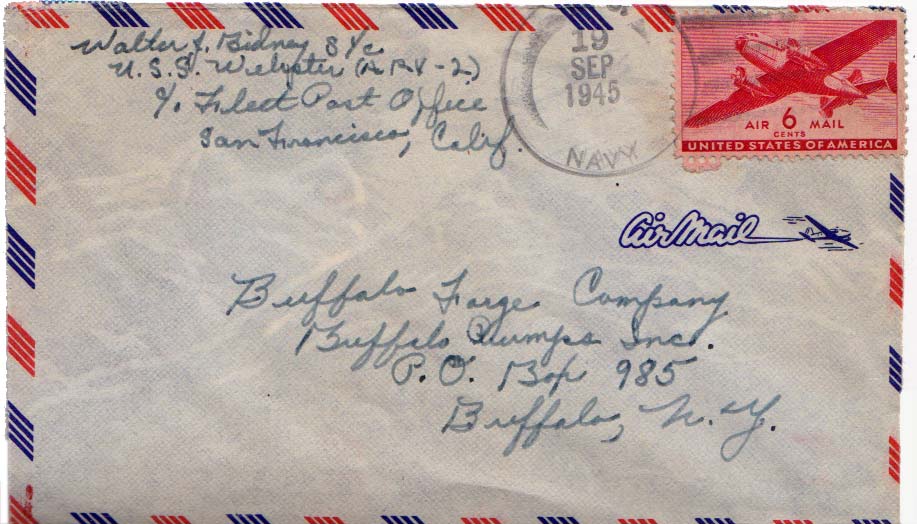 Walter J. Bidney S 1/c
U.S.S. Webster (ARV-2)
c/o Fleet Post Office
San Francisco, Calif.
19
SEP
1945
NAVY
AIR 6 MAIL
CENTS
UNITED STATES OF AMERICA
Air Mail
Buffalo Forge Company
Buffalo Pumps Inc.
P.O. Box 985
Buffalo, N.Y.